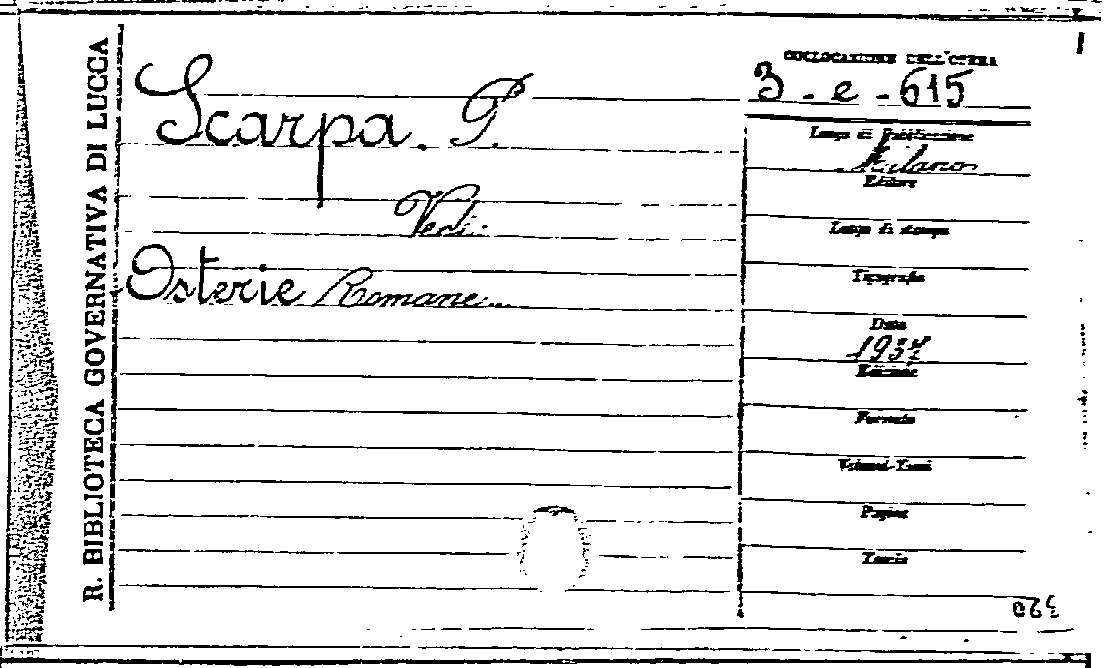 R. BIBLIOTECA GOVERNATIVA DI LUCCA
Scarpa. P.
Vedi.
Osterie Romane...
COLLOCAZIONE DELL'OPERA
3 - e - 615
Luogo di Pubblicazione
Milano
Editore
Luogo di stampa
Tipografia
Data
1937
Edizione
Formato
Volumi-Tomi
Pagine
Tavole
320